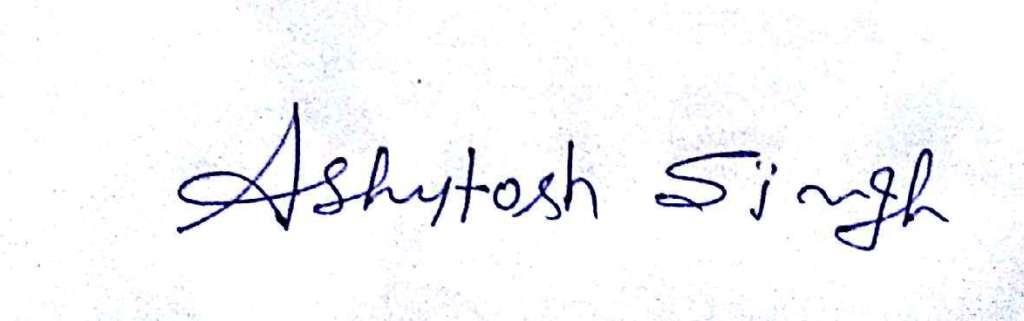 Ashutosh Singh